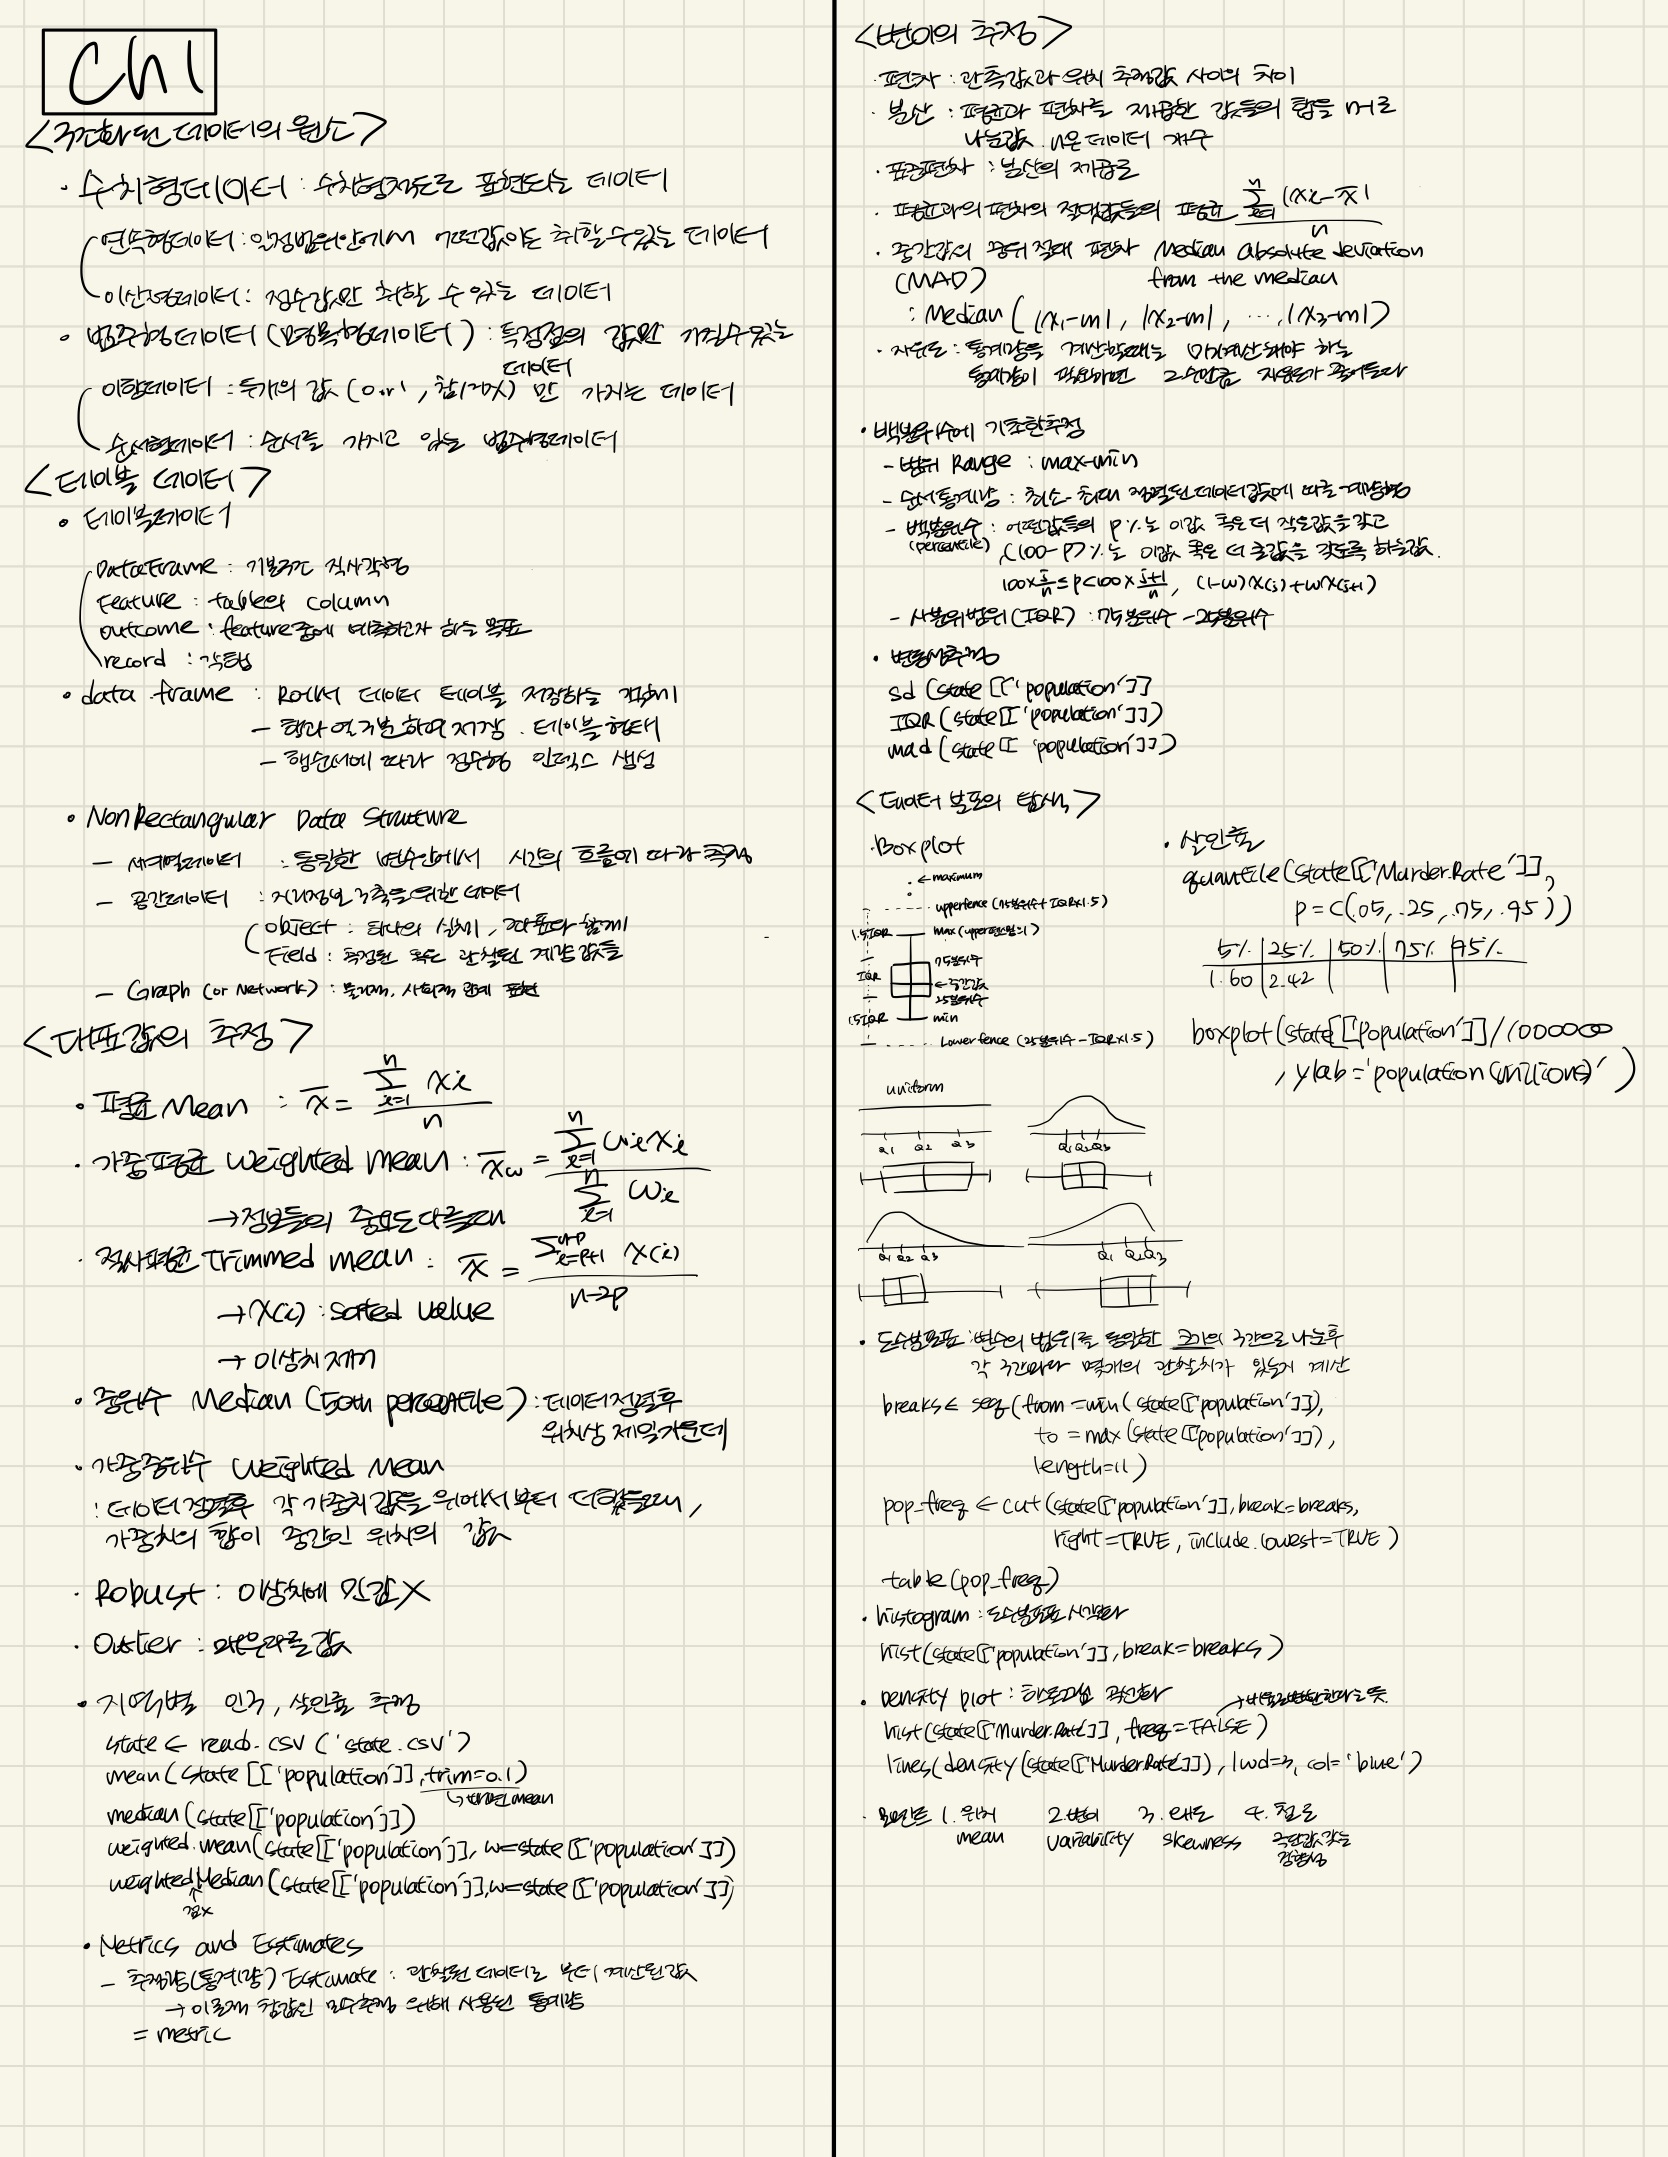 Ch1
<구조화 된 데이터의 원소>
· 수치형데이터 : 수치형척도로 표현되는 데이터
연속형데이터 : 일정범위안에서 어떤값이든 취할 수 있는 데이터
이산형데이터 : 정수값만 취할 수 있는 데이터
· 범주형 데이터 (명목형데이터) : 특정점의 값만 가질수있는
데이터
이항데이터 : 두개의 값 (0 or 1, 참/거짓) 만 가지는 데이터
순서형데이터 : 순서를 가지고 있는 범주형데이터
<테이블 데이터>
· 테이블데이터
DataFrame : 기본적인 직사각형
Feature : table의 column
outcome : feature중에 예측하고자 하는 목표
record : 각행
· data.frame : R에서 데이터 테이블 저장하는 객체
- 행과 열 구분 하여 저장. 테이블 형태
- 행순서에 따라 정수형 인덱스 생성
· NonRectangular Data Struture
- 시계열데이터 : 동일한 변수안에서 시간의 흐름에 따라 측정
- 공간데이터 : 지리정보 구축을 위한 데이터
object : 하나의 실체, 좌표와 함께
Field : 측정된 혹은 관찰된 계량 값들
- Graph (or Network) : 물리적, 사회적 관계 표현
<대표값의 추정>
· 평균 Mean : x̄ = Σⁿᵢ₌₁ xi / n
· 가중평균 weighted mean : x̄w = Σⁿᵢ₌₁ wi xi / Σⁿᵢ₌₁ wi
→ 정보들의 중요도 다를때
· 절사평균 Trimmed mean : x̄ = Σⁿ⁻ᵖᵢ₌ₚ₊₁ x(i) / n-2p
→ x(i) : sorted value
→ 이상치 제거
· 중위수 Median (50th percentile) : 데이터정렬후
위치상 제일가운데
· 가중중위수 Weighted Mean
: 데이터정렬후 각 가중치 값을 위에서부터 더했을때,
가중치의 합이 중간인 위치의 값
· Robust : 이상치에 민감X
· Outlier : 매우다른값
· 지역별 인구, 살인율 추정
state <- read.csv('state.csv')
mean(state[['population']], trim=0.1)
↳ trimmed mean
median(state[['population']])
weighted.mean(state[['population']], w=state[['population']])
weightedMedian(state[['population']], w=state[['population']])
↑
점X
· Metrics and Estimates
- 추정량(통계량) Estimate : 관찰된 데이터로 부터 계산된 값
→ 이론적 참값인 모수추정 위해 사용된 통계량
= metric
<변이의 추정>
· 편차 : 관측값과 위치 추정값 사이의 차이
· 분산 : 평균과 편차를 제곱한 값들의 합을 n-1로
나눈값. n은 데이터 개수
· 표준편차 : 분산의 제곱근
· 평균과의 편차의 절대값들의 평균 Σⁿᵢ₌₁ |xi - x̄| / n
· 중간값의 중위 절대 편차 Median absolute deviation
(MAD) from the median
: Median(|x1-m|, |x2-m|, ..., |x3-m|)
· 자유도 : 통계량을 계산할때는 미리계산돼야 하는
통계량이 필요하면 그 수만큼 자유도가 줄어든다
· 백분위수에 기초한추정
- 범위 Range : max-min
- 순서통계량 : 최소~최대 정렬된 데이터값에 따른 계량형
- 백분위수 : 어떤값들의 P%는 이값 혹은 더 작은값을 갖고
(percentile), (100-P)%는 이값 혹은 더 큰값을 갖도록 하는값.
100×j/n ≤ P < 100×j+1/n, (1-w)x(j)+wx(j+1)
- 사분위범위(IQR) : 75분위수 - 25분위수
· 변동성추정
sd(state[['population']]
IQR(state[['population']])
mad(state[['population']])
<데이터 분포의 탐색>
· Boxplot
← maximum
upperfence (75분위수 + IQR×1.5)
1.5IQR
max (upper펜스범위)
75분위수
IQR
← 중간값
25분위수
1.5IQR
min
Lowerfence (25분위수 - IQR×1.5)
· 살인율
quantile(state[['Murder.Rate']],
p=c(.05, .25, .75, .95))
5% 25% 50% 75% 95%
1.60 2.42
boxplot(state[['population']]/1000000
, ylab='population (millions)')
uniform
Q1 Q2 Q3
Q1 Q2 Q3
Q1 Q2 Q3
Q1 Q2 Q3
· 도수분포표 : 변수의 범위를 동일한 크기의 구간으로 나눈후
각 구간마다 몇개의 관찰치가 있는지 계산
breaks <- seq(from=min(state[['population']]),
to=max(state[['population']]),
length=11)
pop_freq <- cut(state[['population']], break=breaks,
right=TRUE, include.lowest=TRUE)
table(pop_freq)
· histogram : 도수분포표 시각화
hist(state[['population']], break=breaks)
· Density plot : 히스토그램 곡선화
→ 비율로변환한다는 뜻.
hist(state[['Murder.Rate']], freq=FALSE)
lines(density(state[['Murder.Rate']]), lwd=3, col='blue')
· 모멘트 1. 위치 2. 변이 3. 왜도 4. 첨도
mean variability skewness 극단값갖는
경향성